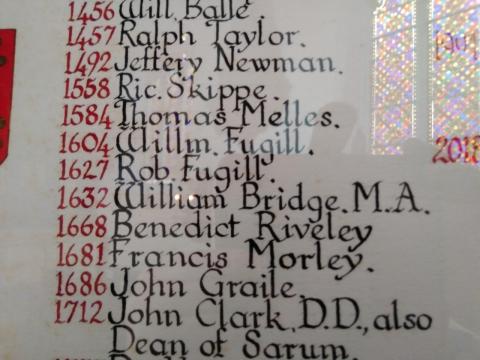 1456 Will. Balle.
1457 Ralph Taylor.
1492 Jeffery Newman.
1558 Ric. Skippe.
1584 Thomas Melles.
1604 Willm. Fugill.
1627 Rob. Fugill.
1632 William Bridge. M.A.
1668 Benedict Riveley
1681 Francis Morley.
1686 John Graile.
1712 John Clark, D.D., also
Dean of Sarum.
201